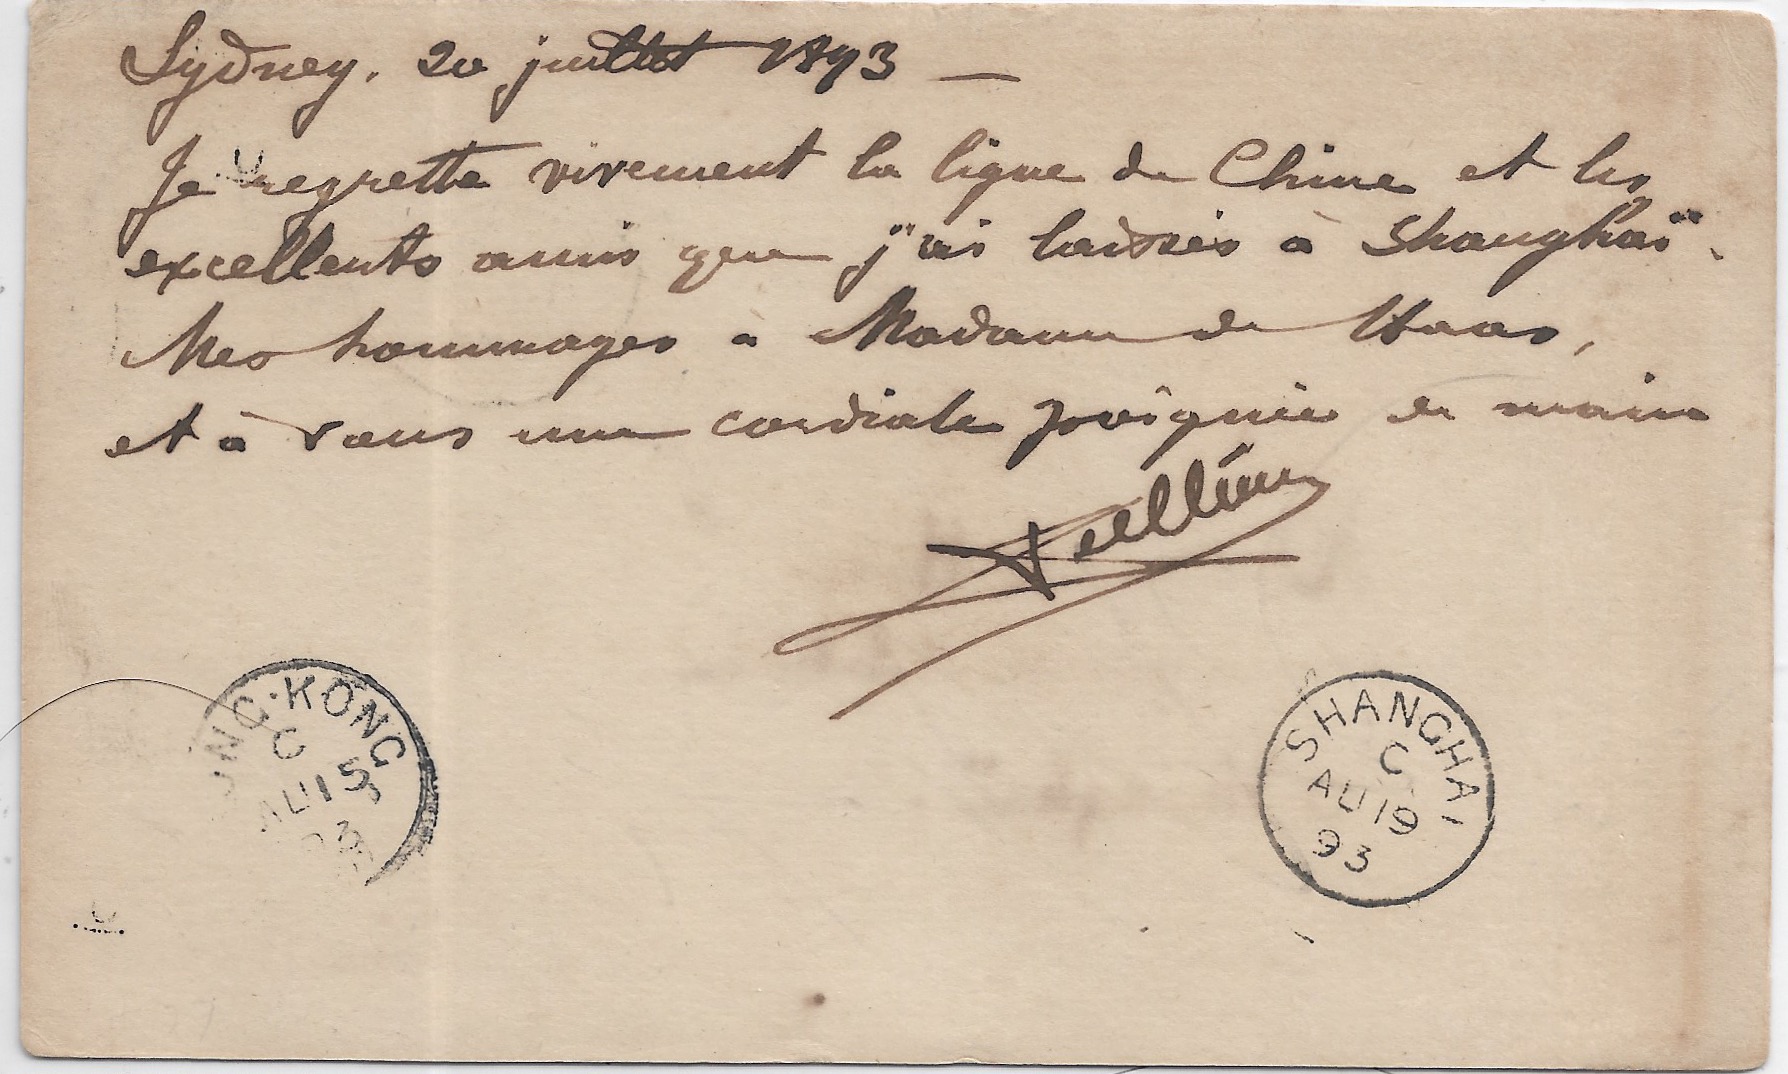 Sydney. 20 juillet 1893 —
Je regrette vivement la ligne de Chine et les
excellents amis que j'ai laissés à Shanghaï.
Mes hommages à Madame de Haas,
et à vous une cordiale poignée de main
HONG·KONG
C
AU 15
93
SHANGHAI
C
AU 19
93